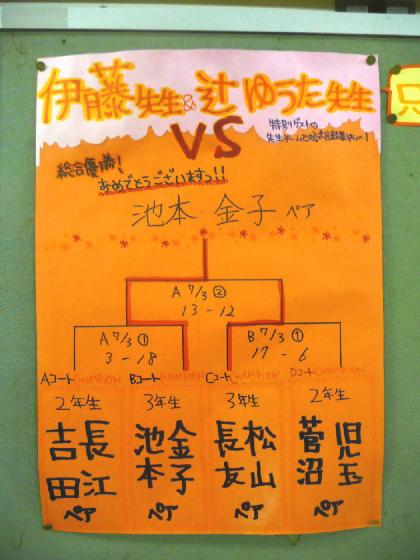 伊藤先生&辻ゆうた先生
VS
特別ゲストの
総合優勝!
おめでとうございますっ!!
池本・金子ペア
A 7/3 ②
13-12
A 7/3 ①
3-18
B 7/3 ①
17-6
Aコート CHAMPION Bコート CHAMPION Cコート CHAMPION Dコート CHAMPION
2年生 3年生 3年生 2年生
吉田 長江 ペア
池本 金子 ペア
長友 松山 ペア
菅沼 児玉 ペア